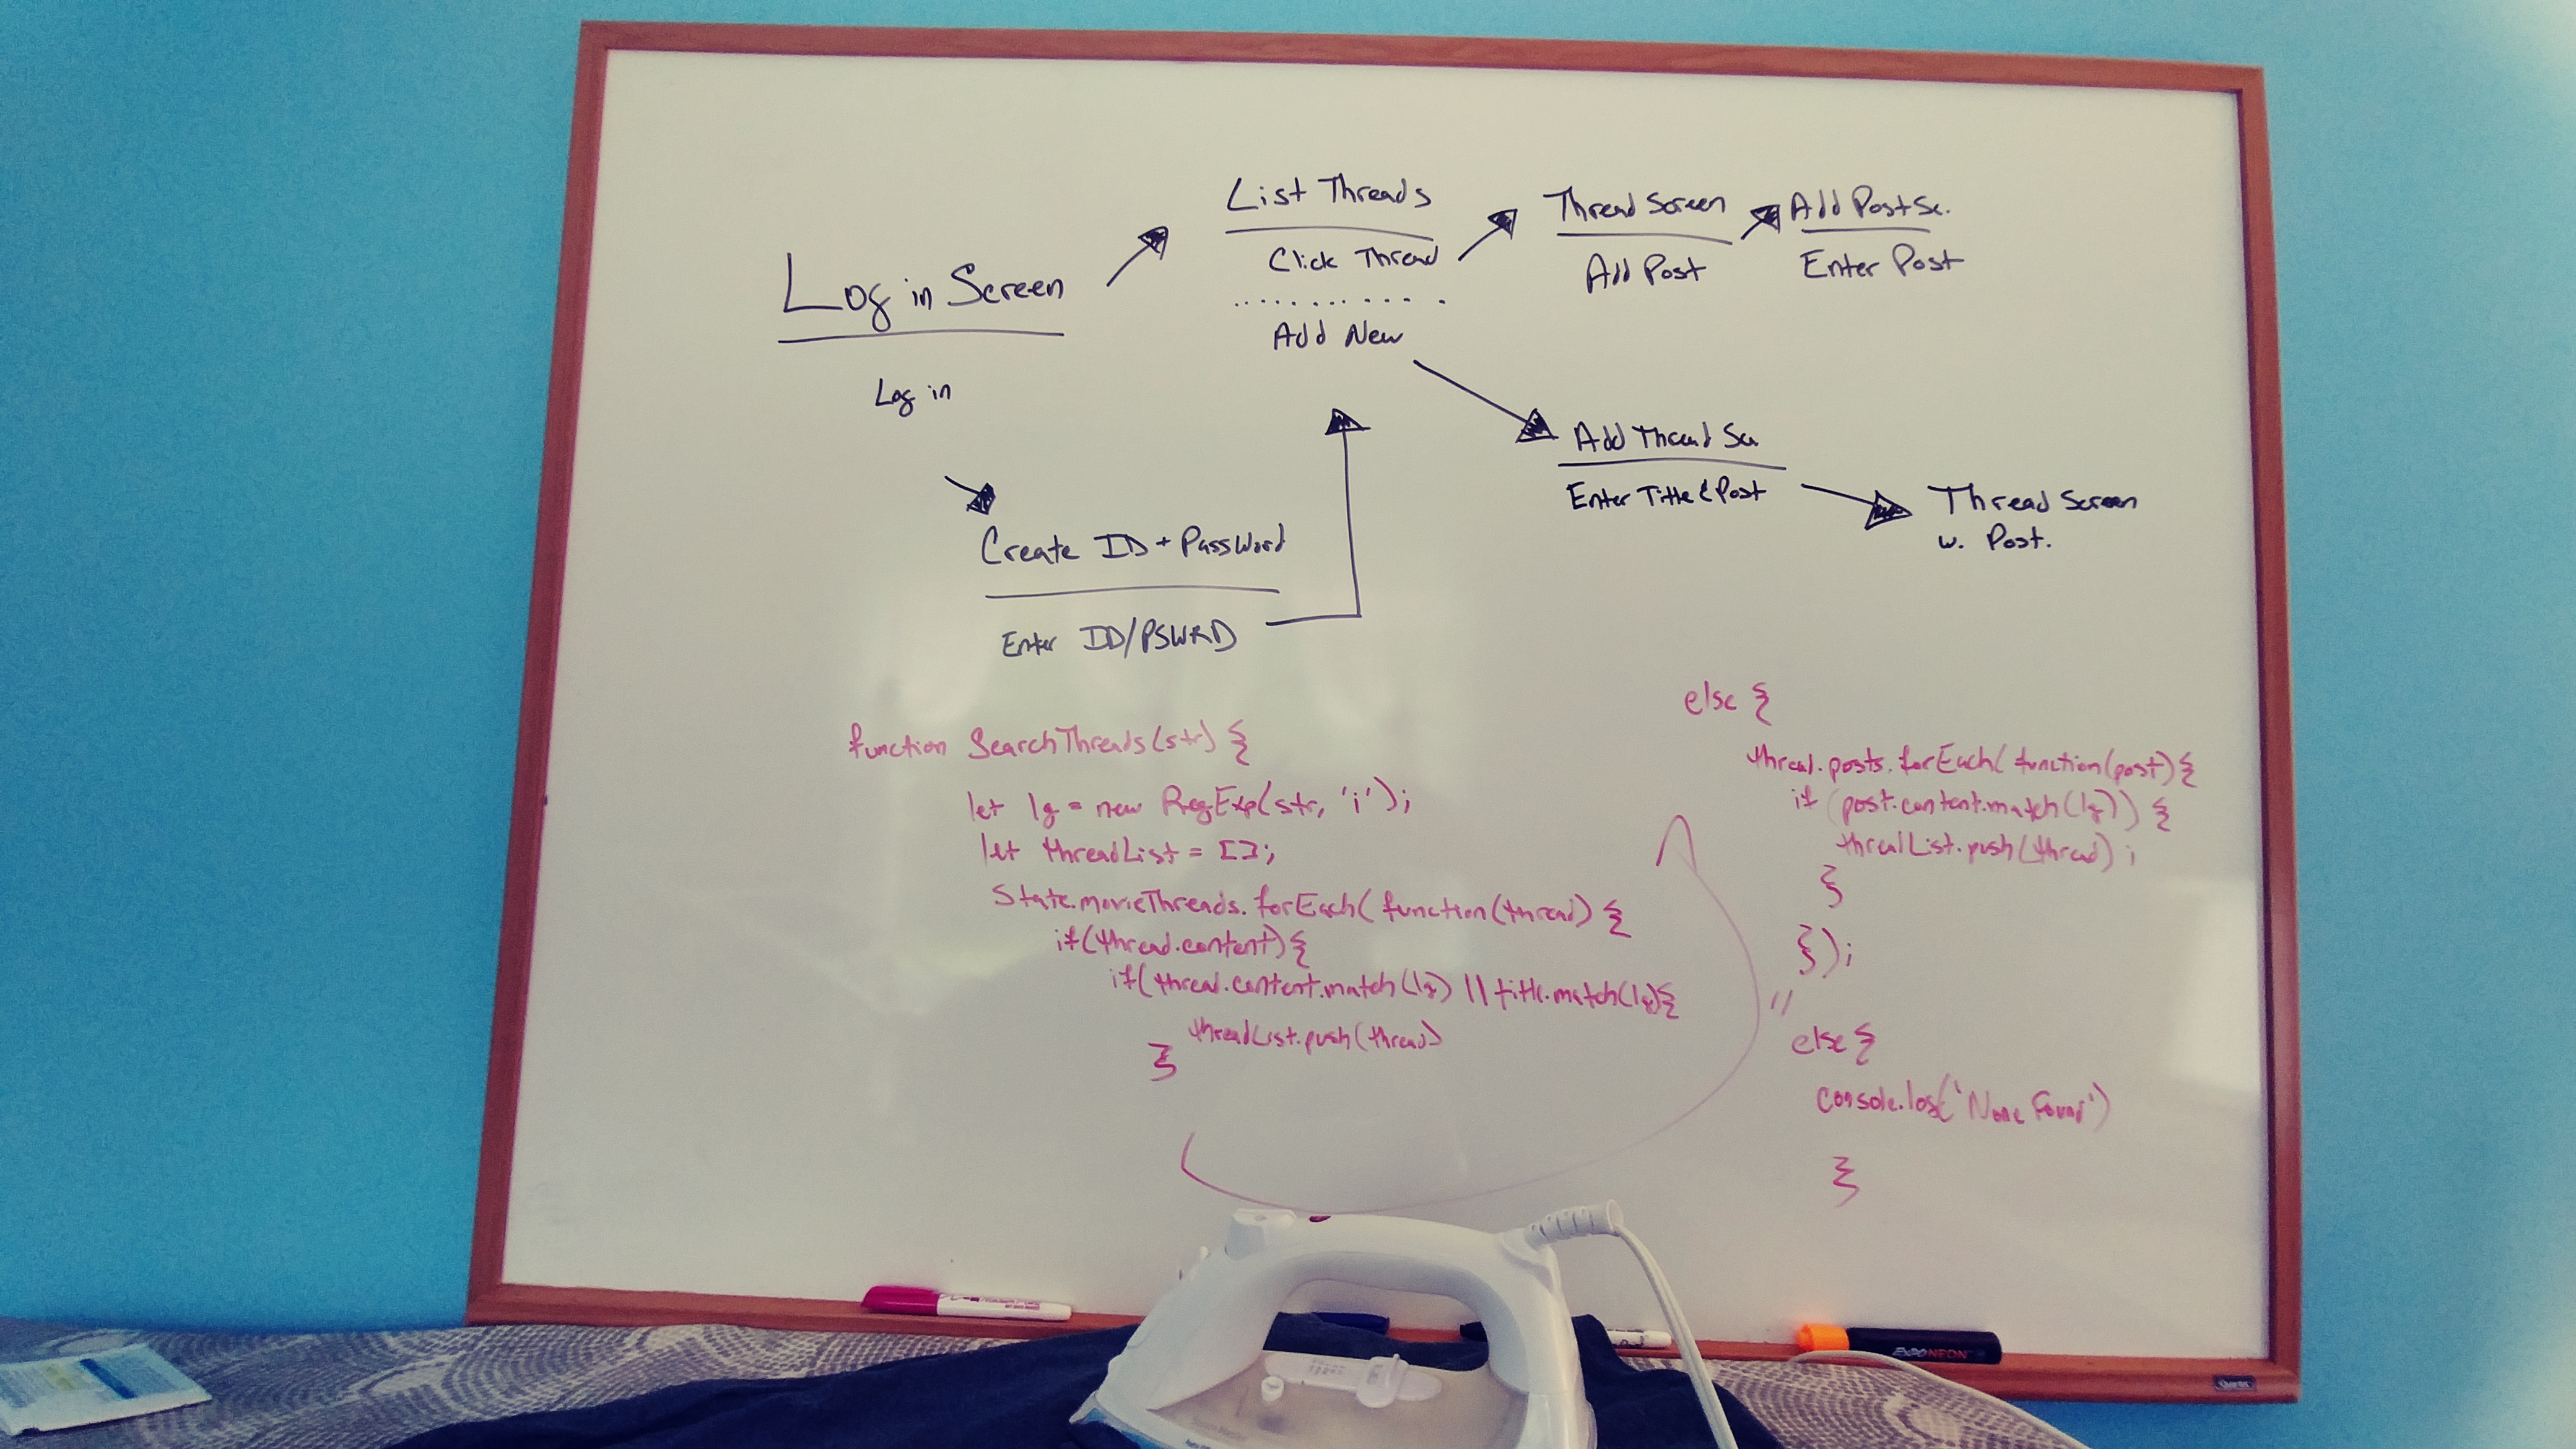 Log in Screen
Log in
List Threads
Click Thread
Add New
Thread Screen
Add Post
Add Post Sc.
Enter Post
Add Thread Sc
Enter Title & Post
Thread Screen
w. Post.
Create ID + Password
Enter ID/PSWRD
function SearchThreads(str) {
let lg = new RegExp(str, 'i');
let threadList = [];
State.movieThreads.forEach(function(thread) {
if(thread.content){
if(thread.content.match(lg) || title.match(lg){
threadList.push(thread)
}
else {
thread.posts.forEach(function(post){
if (post.content.match(lg)) {
threadList.push(thread);
}
});
//
else {
console.log('None Found')
}
EXPO NEON
Quartet